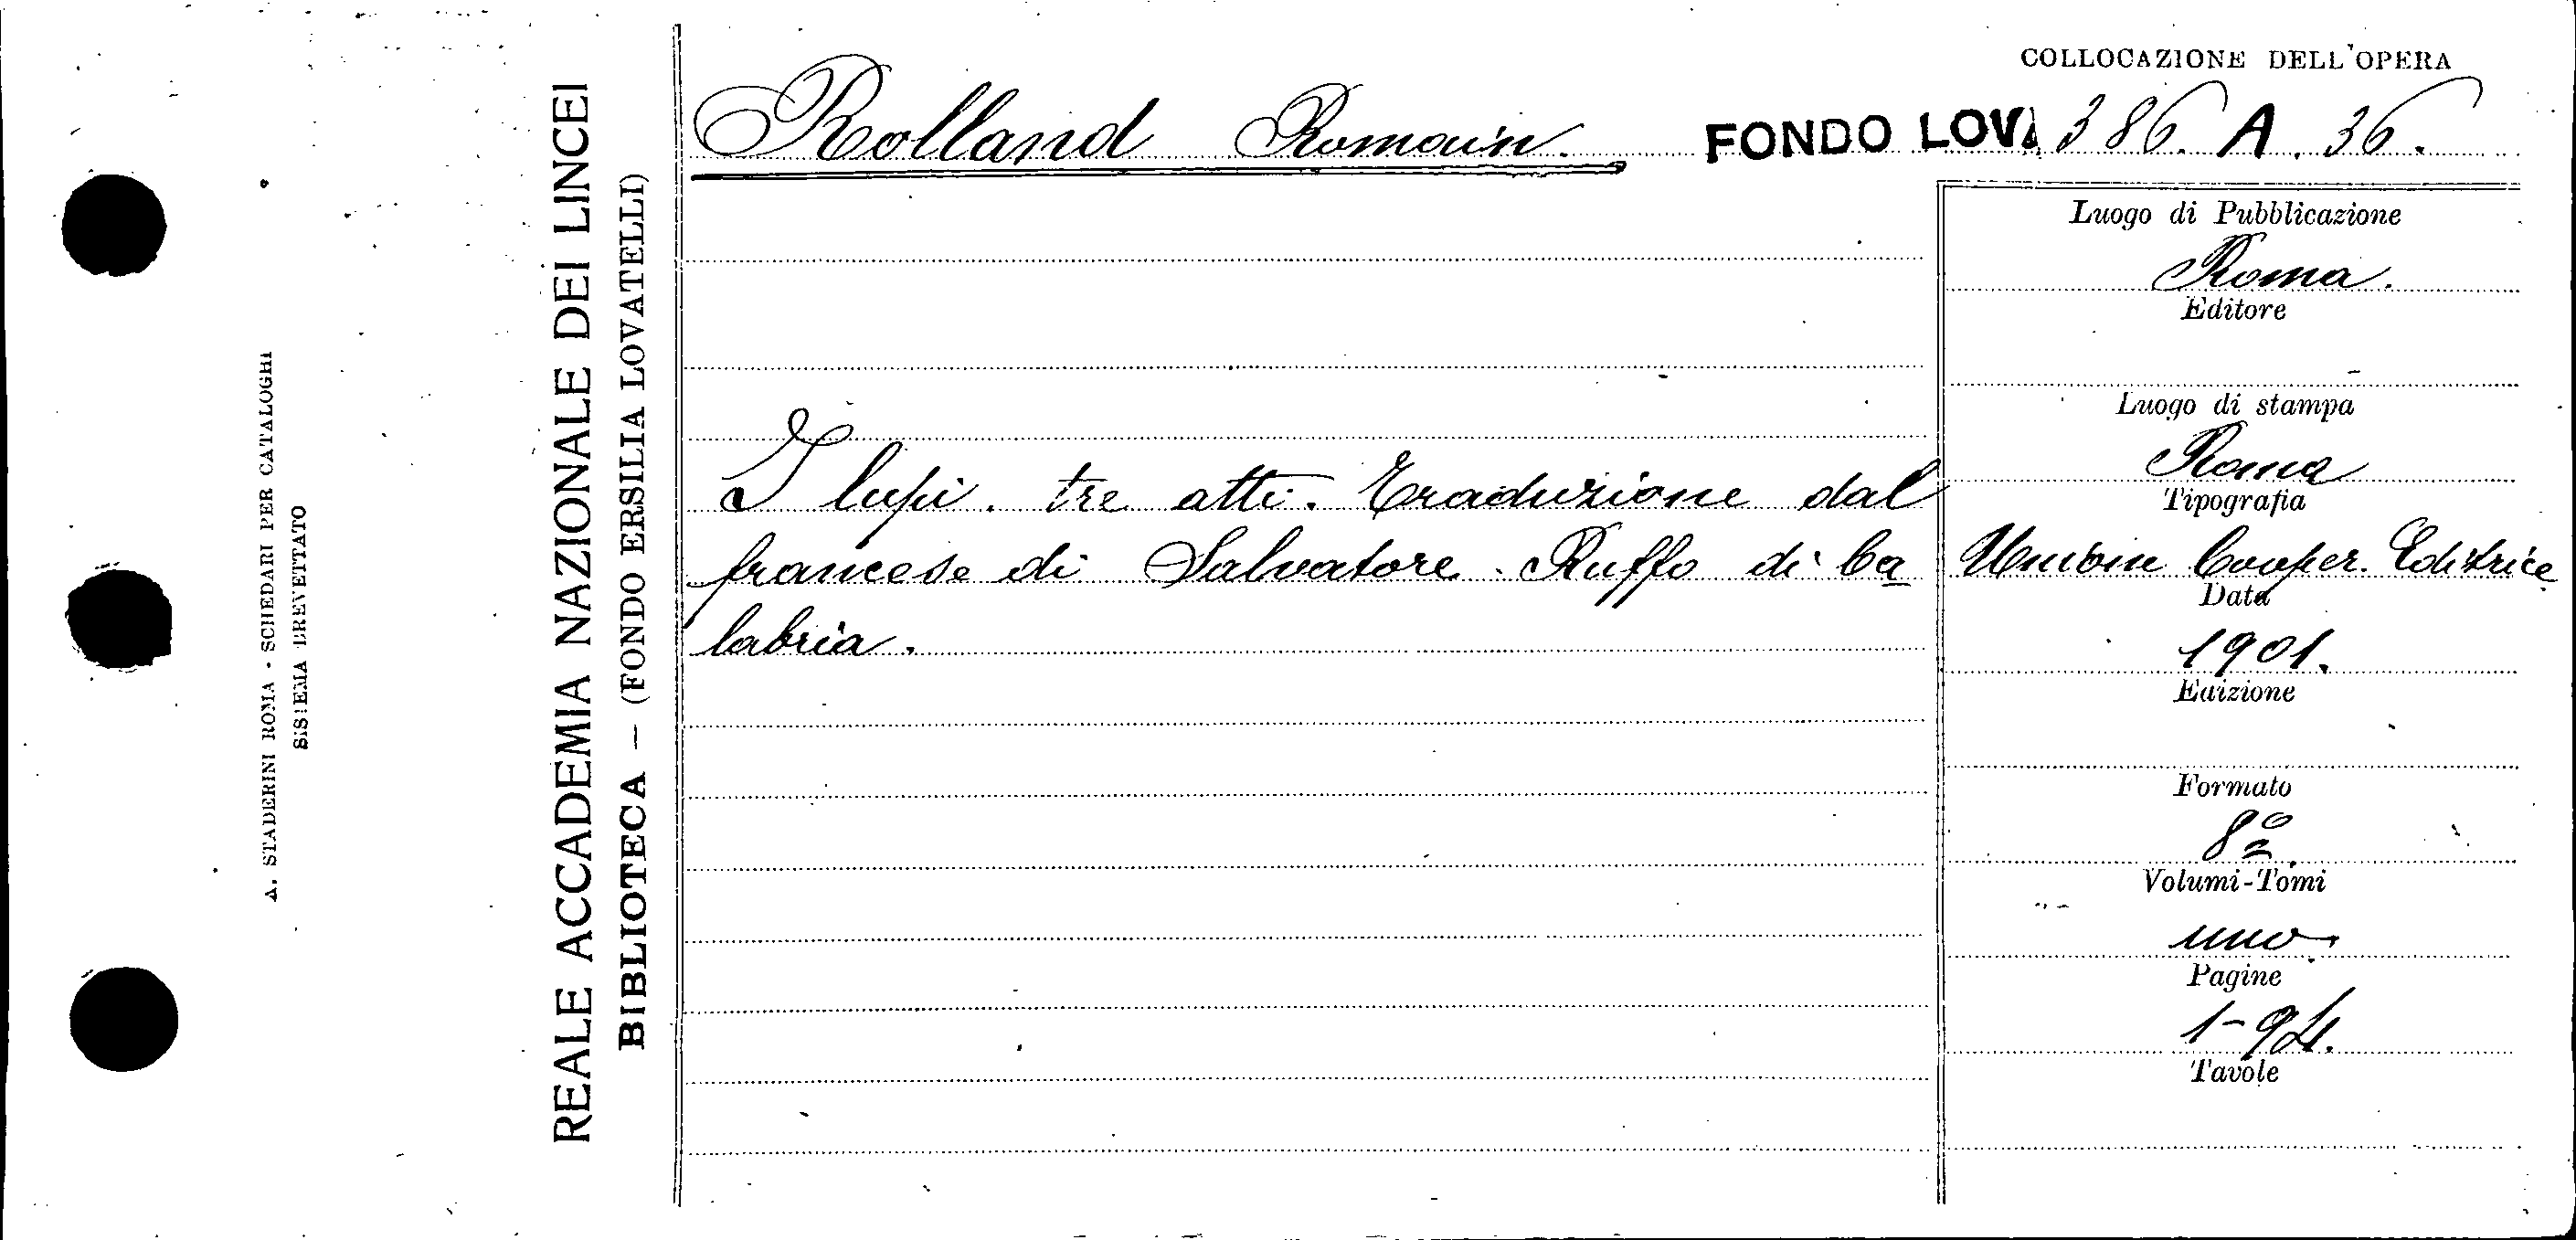 A. STADERINI ROMA - SCHEDARI PER CATALOGHI
SISTEMA BREVETTATO
REALE ACCADEMIA NAZIONALE DEI LINCEI
BIBLIOTECA — (FONDO ERSILIA LOVATELLI)
COLLOCAZIONE DELL'OPERA
Rolland Romain.
FONDO LOV. 386. A. 36.
I lupi. tre atti. Traduzione dal
francese di Salvatore Ruffo di Ca
labria.
Luogo di Pubblicazione
Roma.
Editore
Luogo di stampa
Roma
Tipografia
Unione Cooper. Editrice
Data
1901.
Edizione
Formato
8º.
Volumi-Tomi
uno.
Pagine
1-94.
Tavole